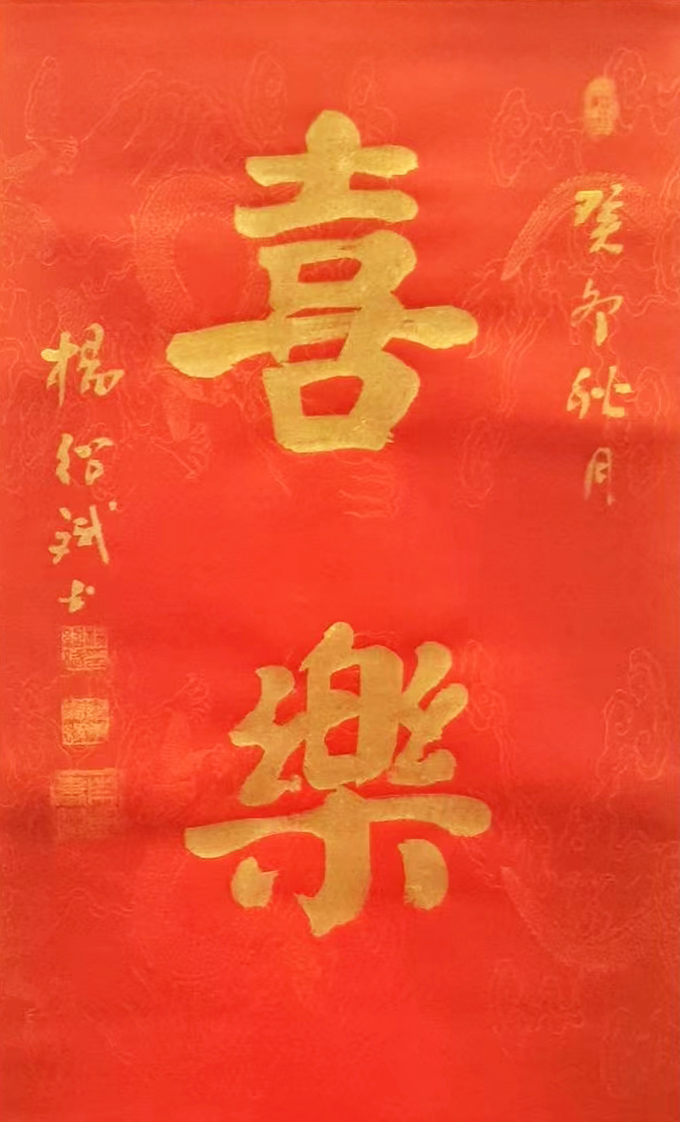 癸卯秋月
喜樂
楊紹斌書